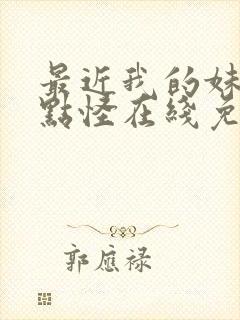 最近我的妹
點怪在綫免
郭應祿